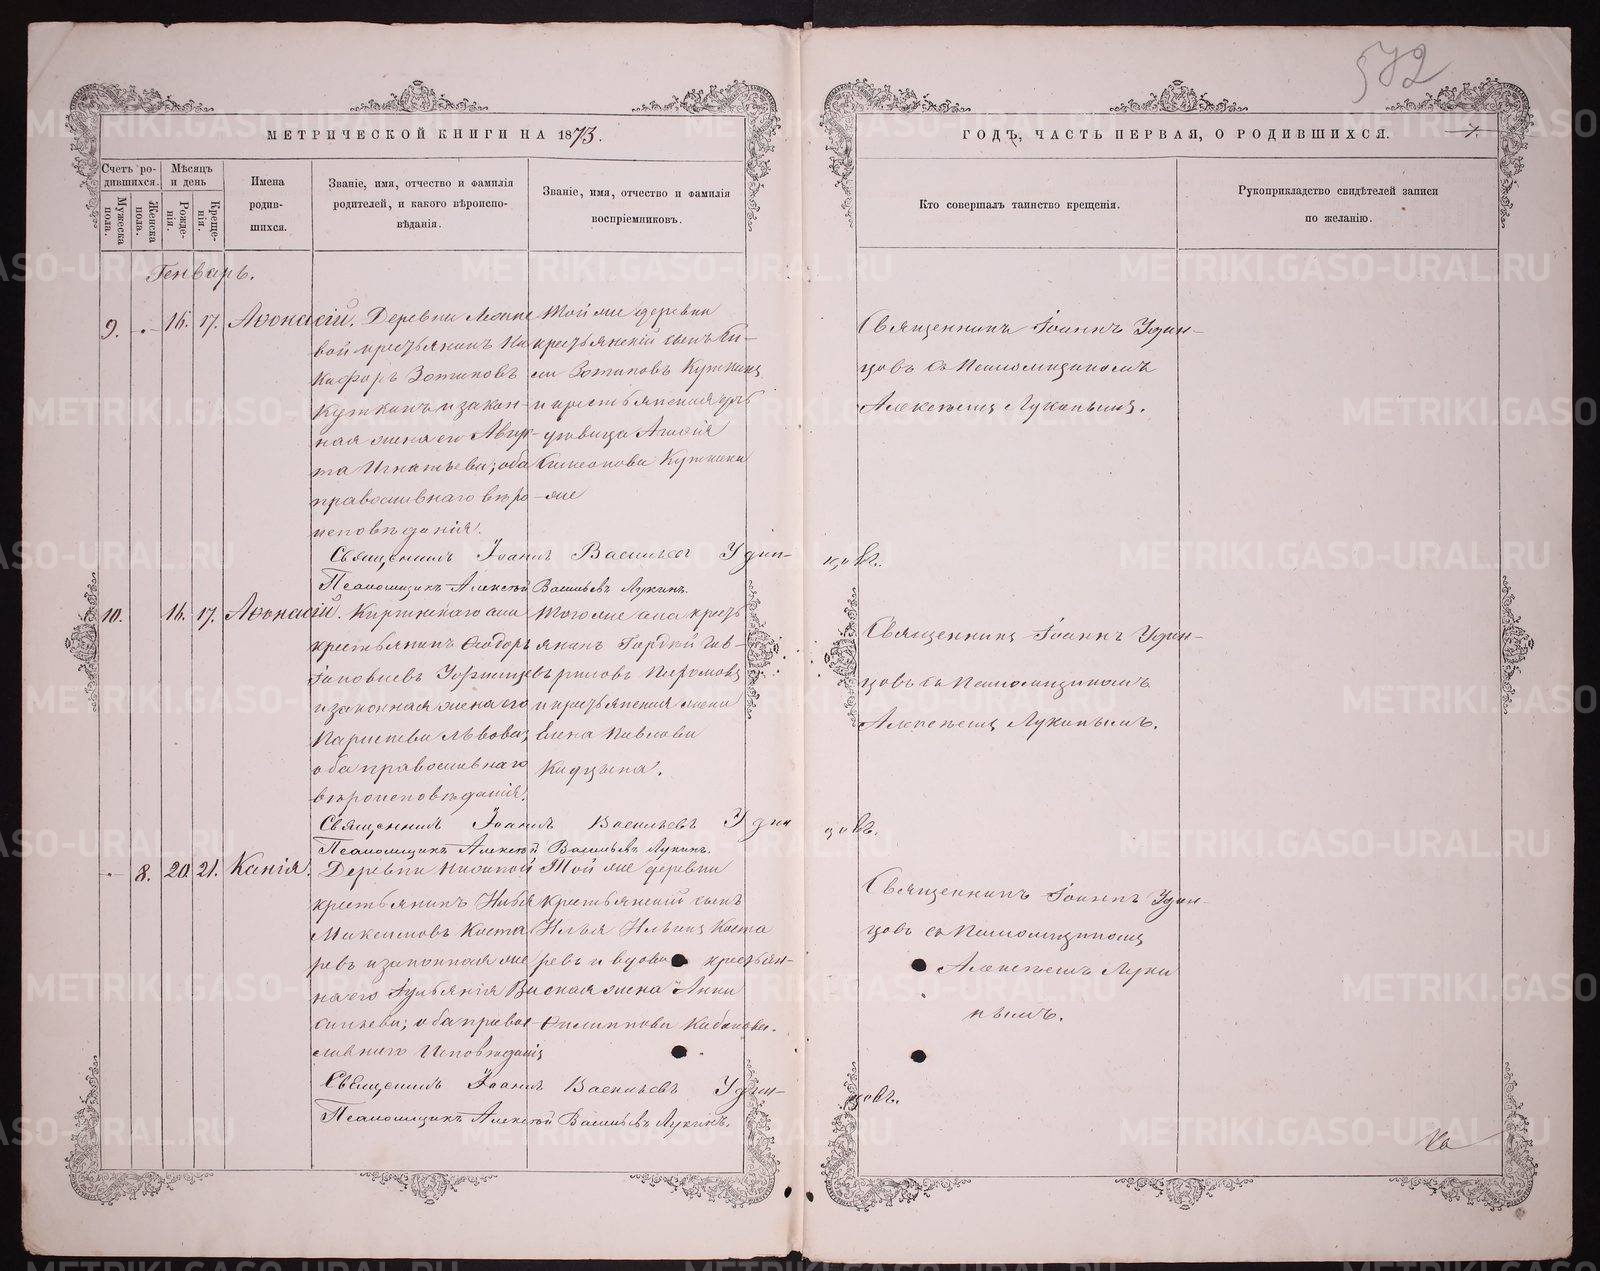 572
МЕТРИЧЕСКОЙ КНИГИ НА 1873.
ГОДЪ, ЧАСТЬ ПЕРВАЯ, О РОДИВШИХСЯ.
Счетъ родившихся.
Мужеска пола.
Женска пола.
Мѣсяцъ и день
Рожденія.
Крещенія.
Имена родившихся.
Званіе, имя, отчество и фамилія родителей, и какого вѣроисповѣданія.
Званіе, имя, отчество и фамилія воспріемниковъ.
Кто совершалъ таинство крещенія.
Рукоприкладство свидѣтелей записи по желанію.
Генварь.
9. 16. 17. Аѳонасій.
Деревни
вой крестьянинъ Ни
кифоръ Зотиковъ
Куткинъ и закон-
ная жена его
та Игнатьева; оба
православнаго вѣро
исповѣданія.
Той же деревни
крестьянскій сынъ
Зотиковъ Куткинъ
и крестьянская
Агафія
Симеонова Куткина
Священникъ Іоаннъ Удин-
цовъ съ Псаломщикомъ
Алексѣемъ Лукинымъ.
Священникъ Іоаннъ Васильевъ Удин-
цовъ.
Псаломщикъ Алексѣй Васильевъ Лукинъ.
10. 16. 17. Аѳонасій.
крестьянинъ Ѳеодоръ
и законная жена его
Львова,
оба православнаго
вѣроисповѣданія.
Того же села кресть
янинъ Гордѣй Гав-
риловъ
и крестьянская жена
Елена Павлова
Священникъ Іоаннъ Удин-
цовъ съ Псаломщикомъ
Алексѣемъ Лукинымъ.
Священникъ Іоаннъ Васильевъ Удин
цовъ.
Псаломщикъ Алексѣй Васильевъ Лукинъ.
8. 20. 21. Ксенія.
Деревни
крестьянинъ
Максимовъ Коста
ревъ и законная же
на его Ва
сильева; оба право
славнаго исповѣданія
Той же деревни
крестьянскій сынъ
Илья Ильинъ Коста
ревъ и вдова крестьян-
ская жена Анна
Филиппова
Священникъ Іоаннъ Удин-
цовъ съ Псаломщикомъ
Алексѣемъ Луки
нымъ.
Священникъ Іоаннъ Васильевъ Удин-
цовъ.
Псаломщикъ Алексѣй Васильевъ Лукинъ.
METRIKI.GASO-URAL.RU